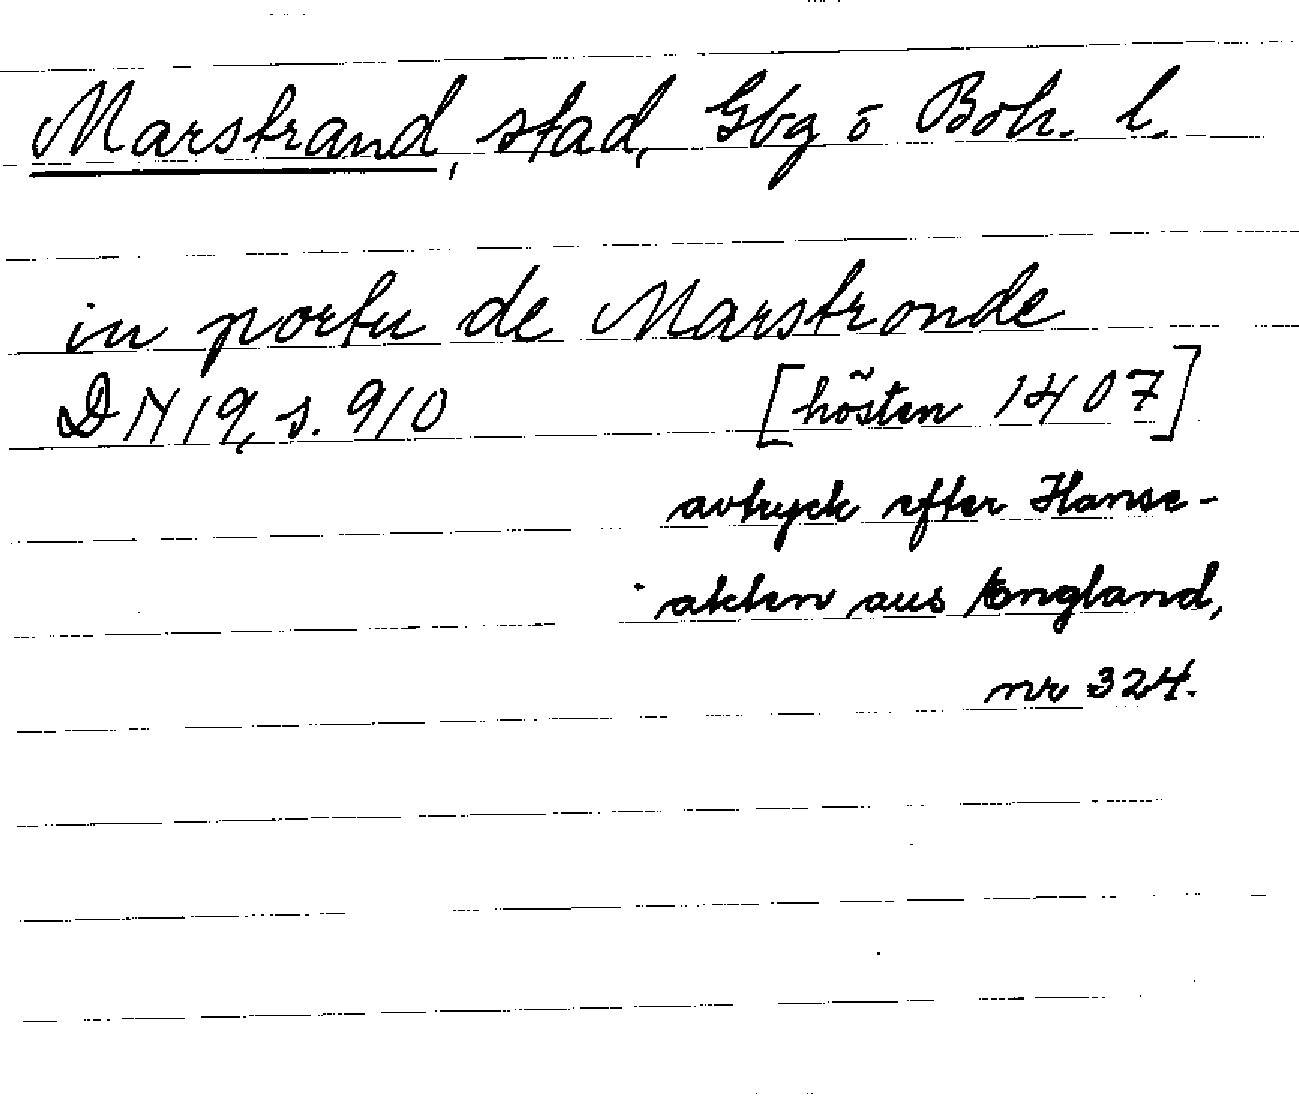 Marstrand, stad, Gbg o Boh. l.
in portu de Marstronde
DN 19, s. 910 [hösten 1407]
avtryck efter Hanse-
akten aus England,
nr 324.